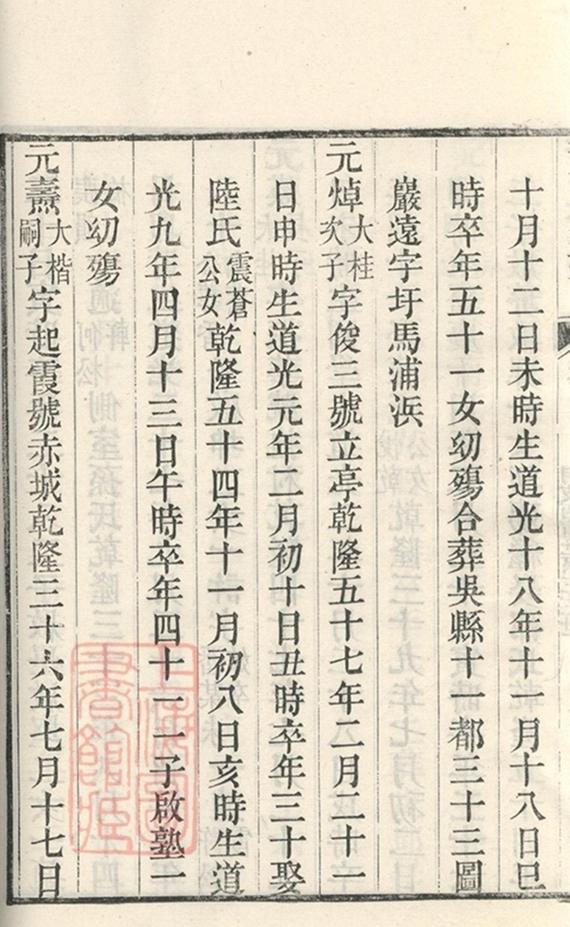 十月十二日未時生道光十八年十一月十八日巳
時卒年五十一女幼殤合葬吳縣十一都三十三圖
巖遠字圩馬浦浜
元焯大桂次子字俊三號立亭乾隆五十七年二月二十一
日申時生道光元年二月初十日丑時卒年三十娶
陸氏震蒼公女乾隆五十四年十一月初八日亥時生道
光九年四月十三日午時卒年四十一一子啟塾一
女幼殤
元燾大楷嗣子字起霞號赤城乾隆三十六年七月十七日